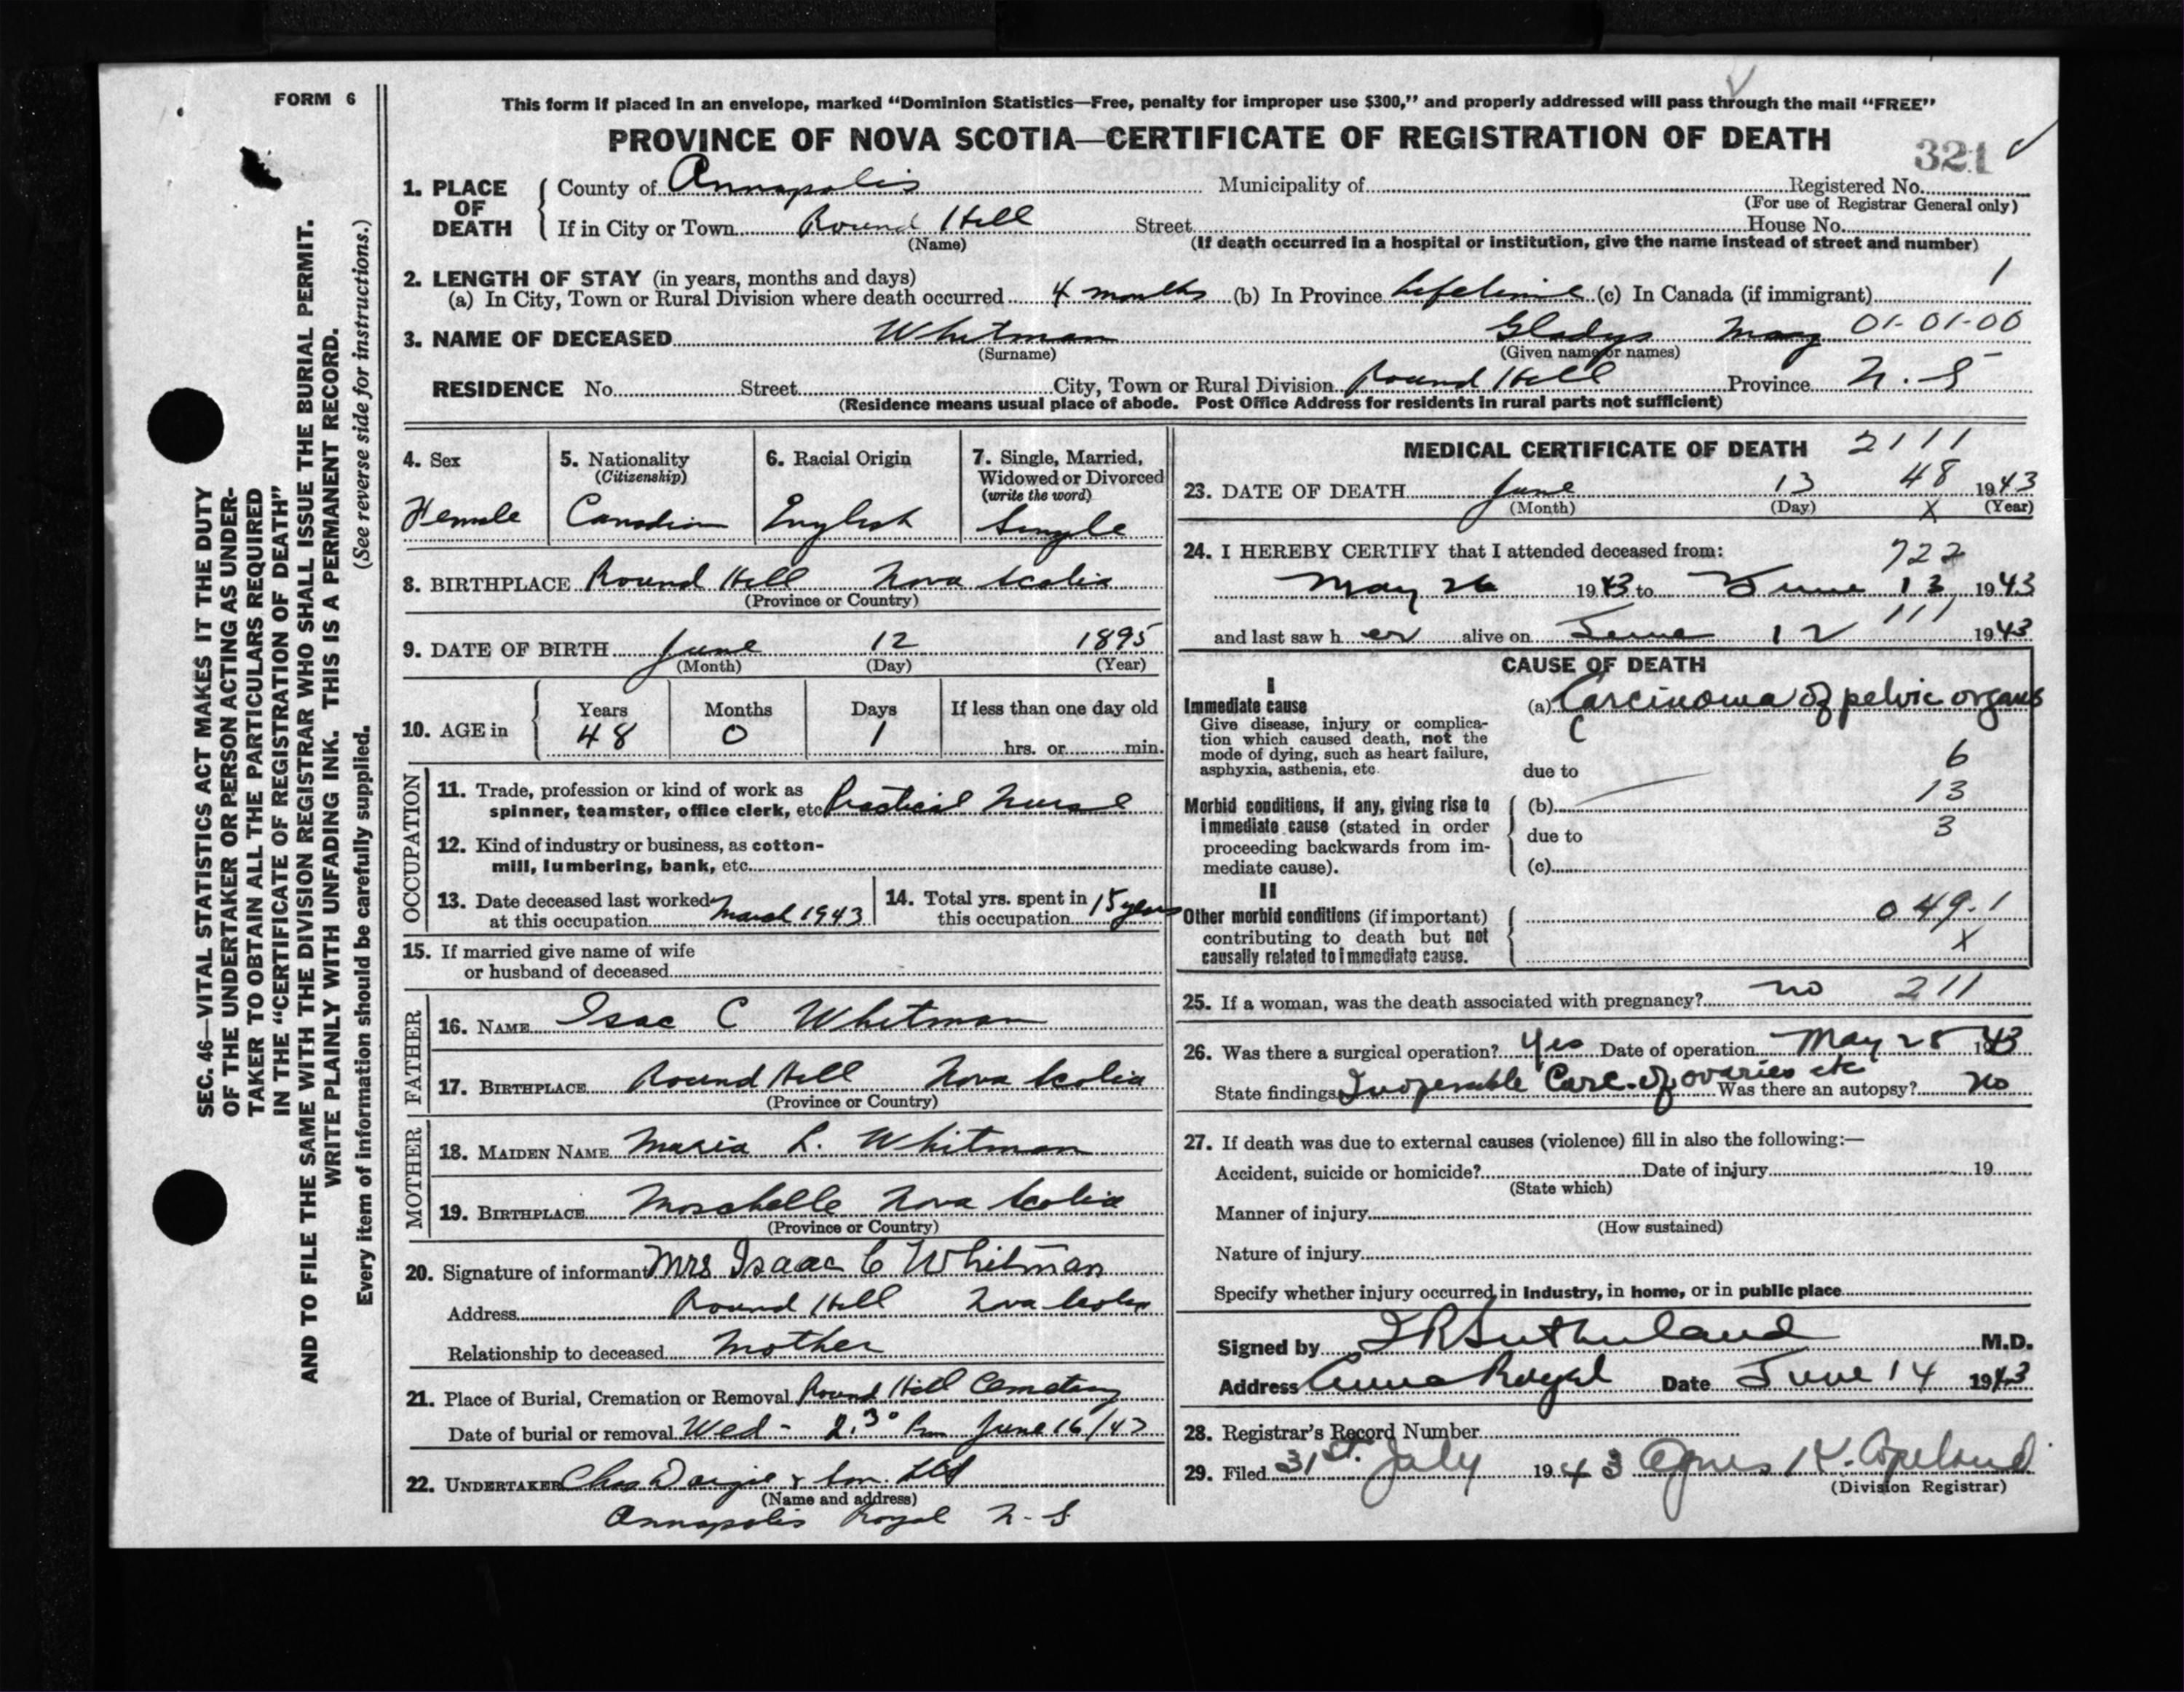 FORM 6
This form if placed in an envelope, marked "Dominion Statistics—Free, penalty for improper use $300," and properly addressed will pass through the mail "FREE"
PROVINCE OF NOVA SCOTIA—CERTIFICATE OF REGISTRATION OF DEATH
321
1. PLACE OF DEATH
County of Annapolis Municipality of Registered No.
(For use of Registrar General only)
If in City or Town Round Hill Street House No.
(Name) (If death occurred in a hospital or institution, give the name instead of street and number)
2. LENGTH OF STAY (in years, months and days) 1
(a) In City, Town or Rural Division where death occurred 4 months (b) In Province Lifetime (c) In Canada (if immigrant)
3. NAME OF DECEASED Whitman Gladys Mary 01-01-00
(Surname) (Given name or names)
RESIDENCE No. Street City, Town or Rural Division Round Hill Province N.S
(Residence means usual place of abode. Post Office Address for residents in rural parts not sufficient)
4. Sex
Female
5. Nationality
(Citizenship)
Canadian
6. Racial Origin
English
7. Single, Married,
Widowed or Divorced
(write the word)
Single
8. BIRTHPLACE Round Hill Nova Scotia
(Province or Country)
9. DATE OF BIRTH June 12 1895
(Month) (Day) (Year)
10. AGE in
Years Months Days If less than one day old
48 0 1 hrs. or min.
OCCUPATION
11. Trade, profession or kind of work as
spinner, teamster, office clerk, etc. Practical Nurse
12. Kind of industry or business, as cotton-
mill, lumbering, bank, etc.
13. Date deceased last worked
at this occupation March 1943
14. Total yrs. spent in
this occupation 15 years
15. If married give name of wife
or husband of deceased
FATHER
16. NAME Isac C Whitman
17. BIRTHPLACE Round Hill Nova Scotia
(Province or Country)
MOTHER
18. MAIDEN NAME Maria L. Whitman
19. BIRTHPLACE Moschelle Nova Scotia
(Province or Country)
20. Signature of informant Mrs Isaac C Whitman
Address Round Hill Nova Scotia
Relationship to deceased Mother
21. Place of Burial, Cremation or Removal Round Hill Cemetery
Date of burial or removal Wed - 2.30 Pm June 16/43
22. UNDERTAKER Chas Dargie & Son Ltd
(Name and address)
Annapolis Royal N.S
MEDICAL CERTIFICATE OF DEATH 2111
48
23. DATE OF DEATH June 13 1943
(Month) (Day) X (Year)
24. I HEREBY CERTIFY that I attended deceased from: 722
May 26 1943 to June 13, 1943
111
and last saw her alive on June 12 1943
CAUSE OF DEATH
I
Immediate cause
Give disease, injury or complica-
tion which caused death, not the
mode of dying, such as heart failure,
asphyxia, asthenia, etc.
(a) Carcinoma of pelvic organs
due to 6
Morbid conditions, if any, giving rise to
immediate cause (stated in order
proceeding backwards from im-
mediate cause).
(b) 13
due to 3
(c)
II
Other morbid conditions (if important)
contributing to death but not
causally related to immediate cause.
049.1
X
25. If a woman, was the death associated with pregnancy? no 211
26. Was there a surgical operation? Yes Date of operation May 28 1943
State findings Inoperable Carc. of ovaries etc Was there an autopsy? no
27. If death was due to external causes (violence) fill in also the following:—
Accident, suicide or homicide? Date of injury 19
(State which)
Manner of injury
(How sustained)
Nature of injury
Specify whether injury occurred in industry, in home, or in public place
Signed by Sutherland M.D.
Address Anna Royal Date June 14 1943
28. Registrar's Record Number
29. Filed 31st. July 1943 Agnes K. Copeland
(Division Registrar)
SEC. 46—VITAL STATISTICS ACT MAKES IT THE DUTY
OF THE UNDERTAKER OR PERSON ACTING AS UNDER-
TAKER TO OBTAIN ALL THE PARTICULARS REQUIRED
IN THE "CERTIFICATE OF REGISTRATION OF DEATH"
AND TO FILE THE SAME WITH THE DIVISION REGISTRAR WHO SHALL ISSUE THE BURIAL PERMIT.
WRITE PLAINLY WITH UNFADING INK. THIS IS A PERMANENT RECORD.
Every item of information should be carefully supplied. (See reverse side for instructions.)